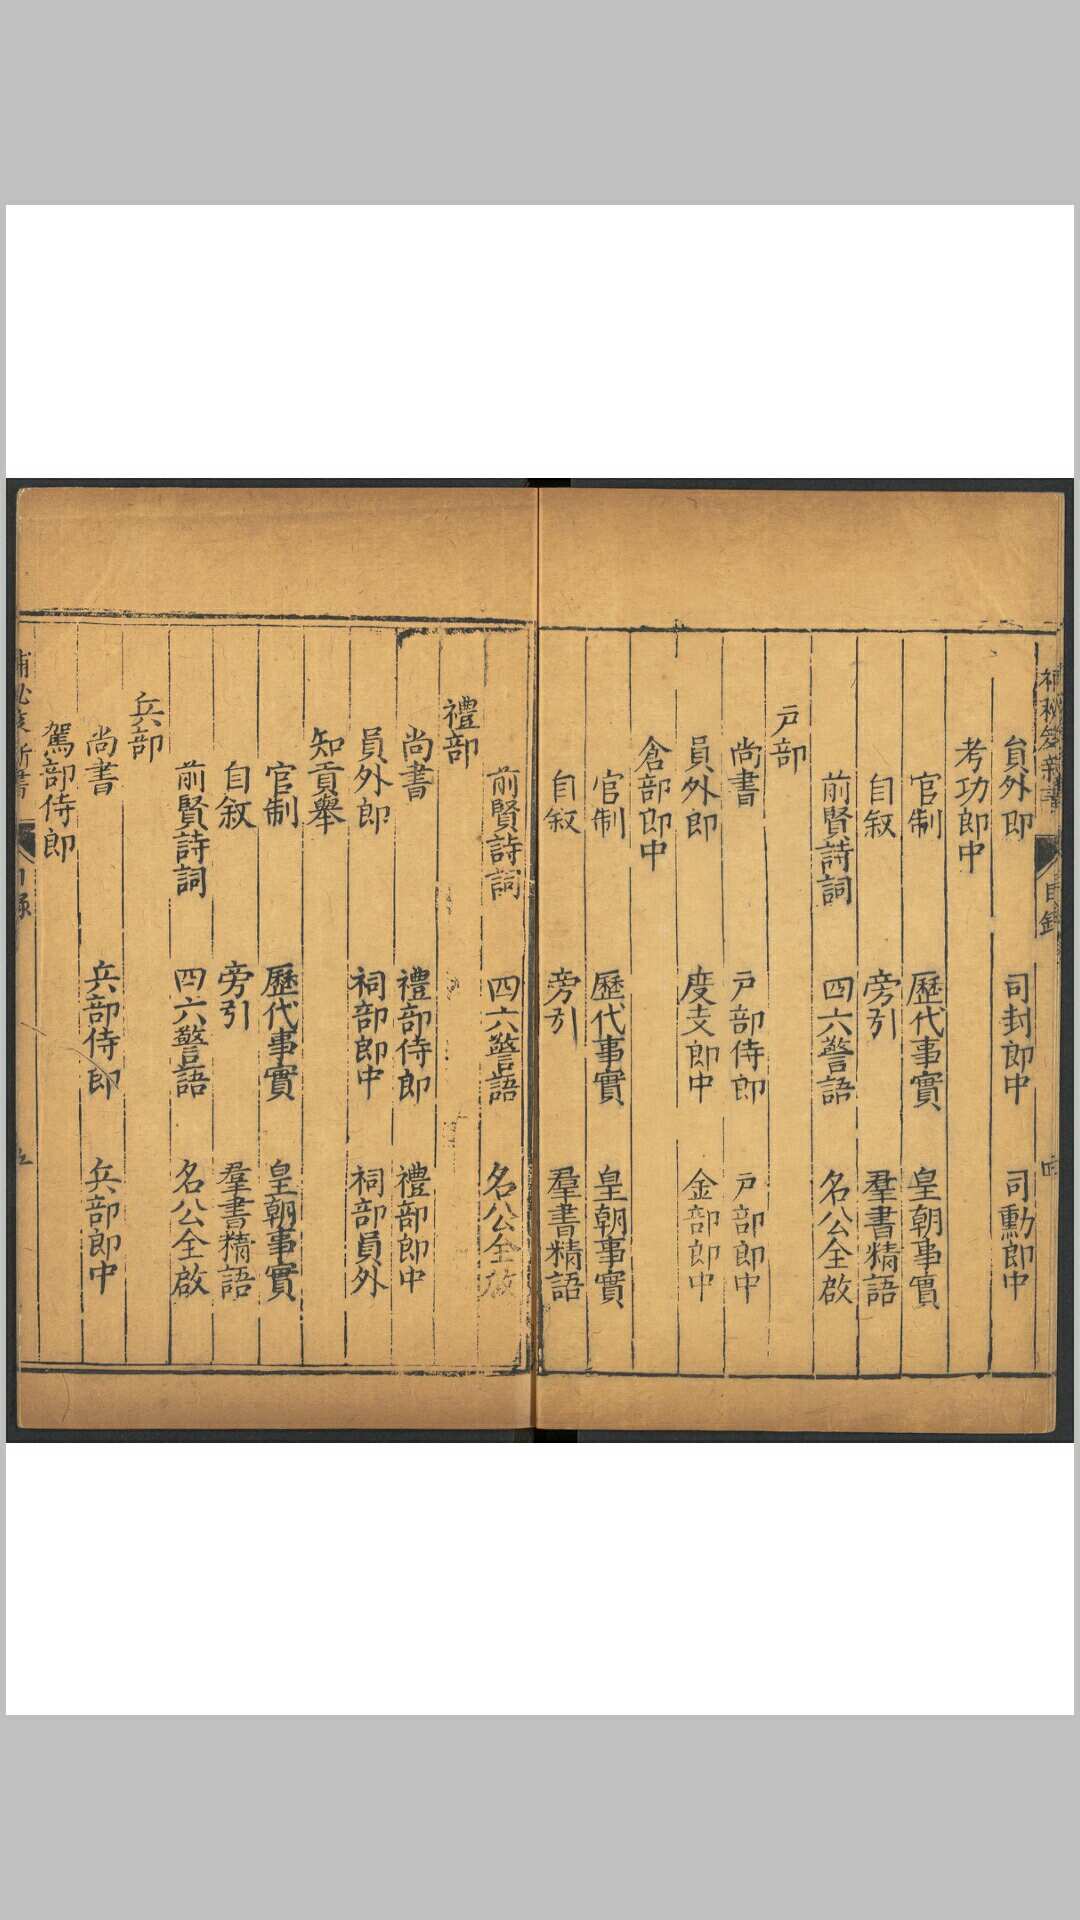 員外郎 司封郎中 司勳郎中
考功郎中
官制 歷代事實 皇朝事實
自叙 旁引 羣書精語
前賢詩詞 四六警語 名公全啟
戸部
尚書 戸部侍郎 戸部郎中
員外郎 度支郎中 金部郎中
倉部郎中
官制 歷代事實 皇朝事實
自叙 旁引 羣書精語
前賢詩詞 四六警語 名公全啟
禮部
尚書 禮部侍郎 禮部郎中
員外郎 祠部郎中 祠部員外
知貢舉
官制 歷代事實 皇朝事實
自叙 旁引 羣書精語
前賢詩詞 四六警語 名公全啟
兵部
尚書 兵部侍郎 兵部郎中
駕部侍郎